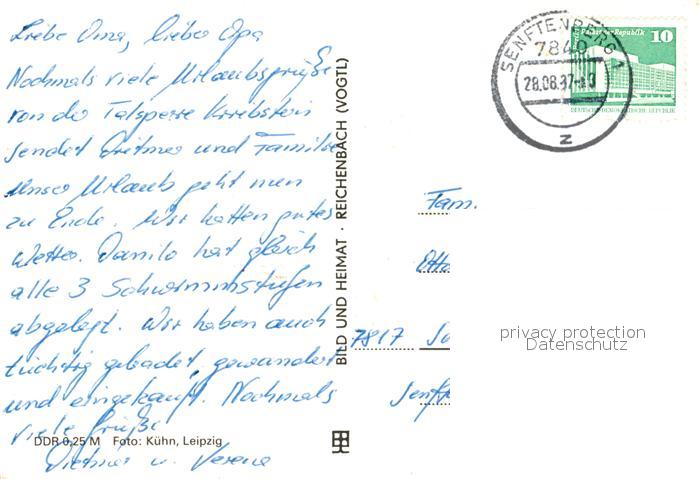 Liebe Oma, lieber Opa
Nochmals viele Urlaubsgrüße
von der Talsperre Kriebstein
sendet Dietmar und Familie
Unser Urlaub geht nun
zu Ende. Wir hatten gutes
Wetter. Danilo hat gleich
alle 3 Schwimmstufen
abgelegt. Wir haben auch
tüchtig gebadet, gewandert
und eingekauft. Nochmals
viele Grüße
Dietmar u. Verena
DDR 0,25 M Foto: Kühn, Leipzig
BILD UND HEIMAT · REICHENBACH (VOGTL)
SENFTENBERG 1
7840
28.08.87
z
Palast der Republik 10
DEUTSCHE DEMOKRATISCHE REPUBLIK
Fam.
Otto
7817
Senft
privacy protection
Datenschutz